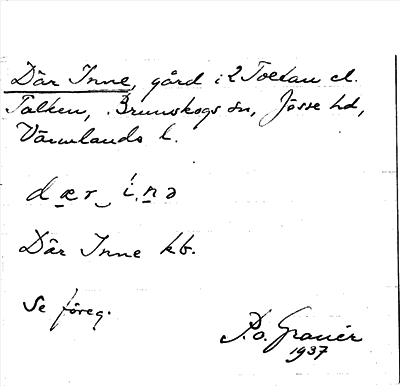 Där Inne, gård i 2 Toetan el.
Talken, Brunskogs sn, Jösse hd,
Värmlands l.
dær inə
Där Inne kb.
Se föreg.
P.o. Granér
1937